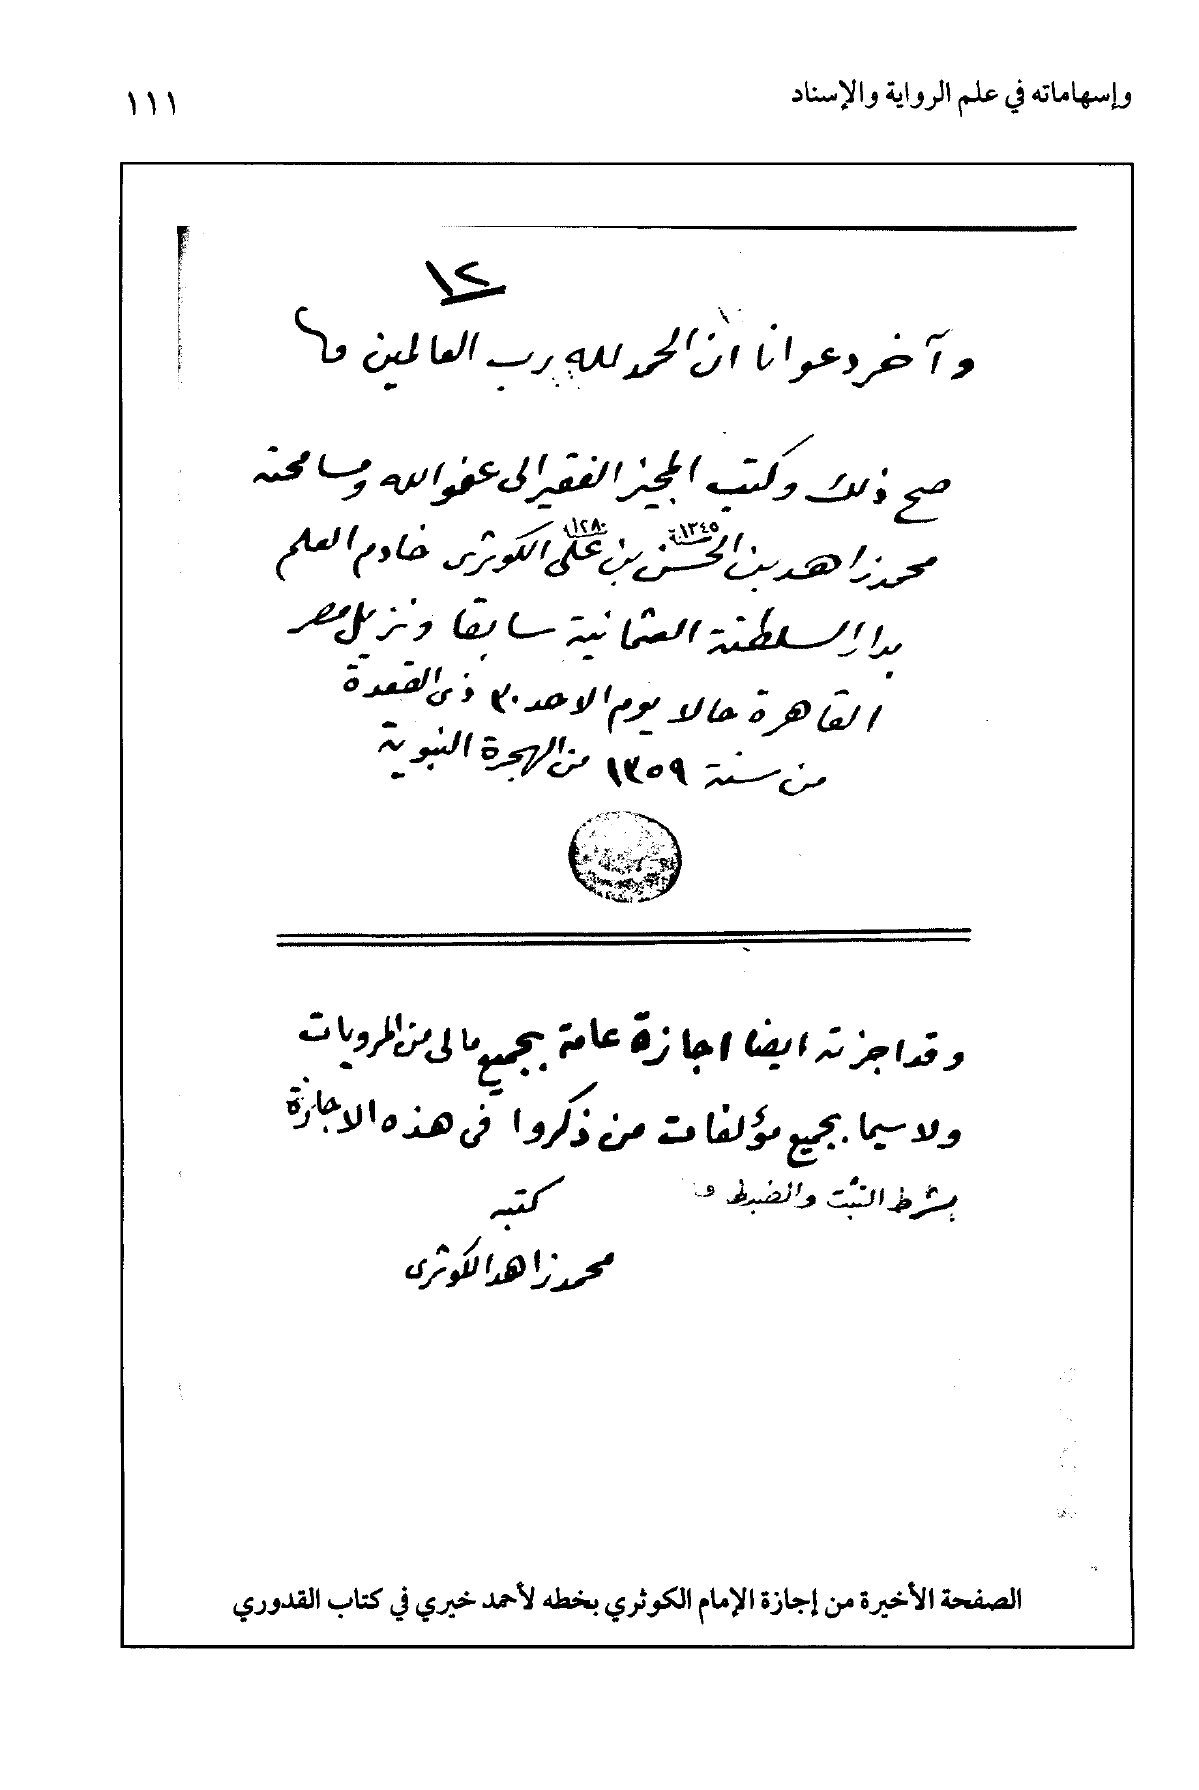 وإسهاماته في علم الرواية والإسناد
١١١
١٢
وآخر دعوانا ان الحمد لله رب العالمين
صح ذلك وكتب المجيز الفقير الى عفو الله ومسامحته
١٣٤٥ ١٢٨٠
محمد زاهد بن الحسن بن على الكوثرى خادم العلم
بدار السلطنة العثمانية سابقا ونزيل مصر
القاهرة حالا يوم الاحد ٣٠ ذى القعدة
من سنة ١٣٥٩ من الهجرة النبوية
وقد اجزته ايضا اجازة عامة بجميع مالى من المرويات
ولا سيما بجميع مؤلفات من ذكروا فى هذه الاجازة
بشرط التثبت والضبط
كتبه
محمد زاهد الكوثرى
الصفحة الأخيرة من إجازة الإمام الكوثري بخطه لأحمد خيري في كتاب القدوري